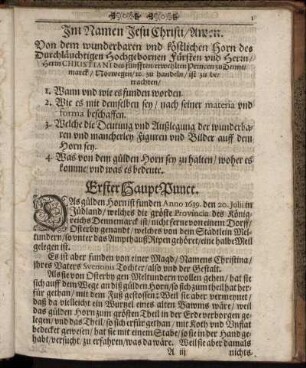 1
Im Namen Jesu Christi/Amen.
Von dem wunderbaren und köstlichen Horn des
Durchläuchtigen Hochgebornen Fürsten und Herrn/
Herrn CHRISTIANI des fünfften erwehlten Printzen zu Denne-
marck/ Norwegen/ ꝛc. zu handeln/ ist zu be-
trachten/
1. Wann und wie es funden worden.
2. Wie es mit demselben sey/ nach seiner materia und
forma beschaffen.
3. Welche die Deutung und Außlegung der wunderba-
ren und mancherley Figuren und Bilder auff dem
Horn sey.
4. Was von dem gülden Horn sey zu halten/ woher es
komme/ und was es bedeute.
Erster Haupt-Punct.
DAs gülden Horn ist funden Anno 1639. den 20. Julii in
Jüdland/ welches die gröste Provincia des König-
reichs Dennemarck ist/ nicht ferne von einem Dorff/
Osterby genandt/ welches von dem Stadtlein Mel-
tundern/ so unter das Ampthauß Ripen gehöret/ eine halbe Meil
gelegen ist.
Es ist aber funden von einer Magd/ Namens Christina/
ihres Vaters Svenonis Tochter/ also und der Gestalt.
Als sie von Osterby gen Meltundern wollen gehen/ hat sie
sich auff dem Wege an diß gülden Horn/ so sich zum theil hat her-
für gethan/ mit dem Fuß gestossen: Weil sie aber vermeynet/
daß da vielleicht ein Wurtzel eines alten Baums wäre/ weil
das gülden Horn zum grösten Theil in der Erde verborgen ge-
legen/ und das Theil/ so sich erfür gethan/ mit Koth und Unflat
bedecket gewesen/ hat sie mit einem Stabe/ so sie in der Hand ge-
habt/ versucht/ zu erfahren/ was da wäre. Weil sie aber damals
A iij nichts